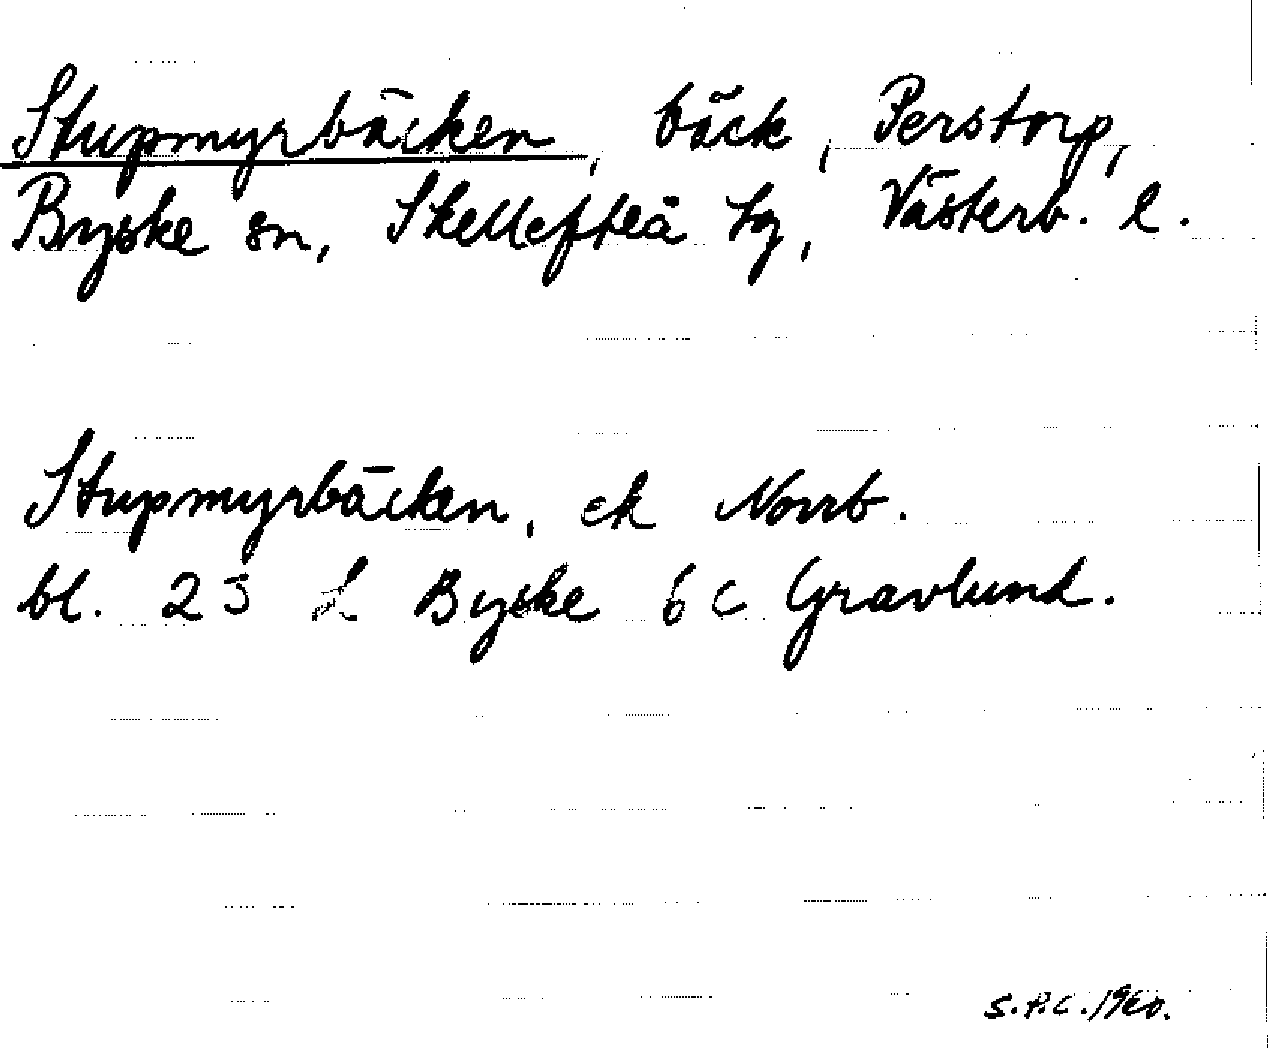 Stupmyrbäcken, bäck, Perstorp,
Byske sn, Skellefteå tg, Västerb. l.
Stupmyrbäcken, ek Norrb.
bl. 23 L Byske 6 c Gravlund.
S.P.C. 1960.